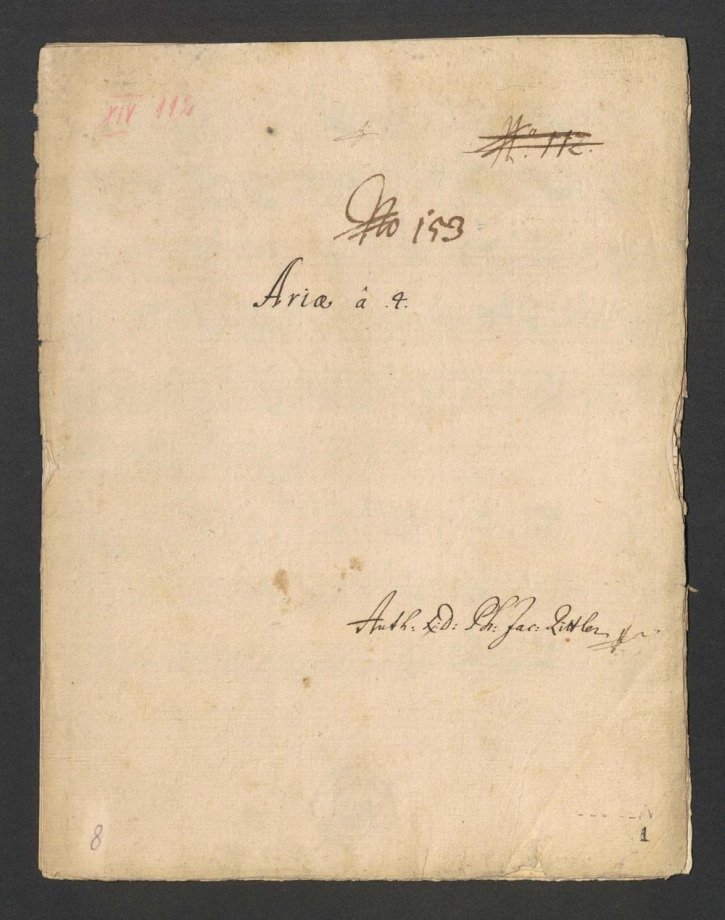 XIV 112
No. 112.
No 153
Ariæ â .4.
Auth: D: Ph: Jac: Rittler
8
1